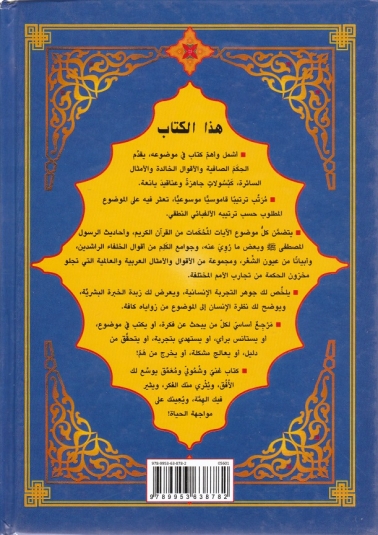 هذا الكتاب
• أشمل وأهمّ كتاب في موضوعه، يقدّم
الحِكَم الصافية والأقوال الخالدة والأمثال
السائرة، كبسولاتٍ جاهزةً وعناقيدَ يانعة.
• مُرَتّب ترتيبًا قاموسيًّا موسوعيًّا، تعثر فيه على الموضوع
المطلوب حسب ترتيبه الألفبائي النطقي.
• يتضمّن كلُّ موضوع الآيات المُحْكَمات من القرآن الكريم، وأحاديث الرسول
المصطفى ﷺ وبعض ما رُوِيَ عنه، وجوامع الكَلِم من أقوال الخلفاء الراشدين،
وأبياتًا من عيون الشّعر، ومجموعة من الأقوال والأمثال العربية والعالمية التي تجلو
مخزون الحكمة من تجارب الأمم المختلفة.
• يلخّص لك جوهر التجربة الإنسانية، ويعرض لك زبدة الخبرة البشريّة،
ويوضح لك نظرة الإنسان إلى الموضوع من زواياه كافة.
• مَرْجِعٌ أساسيّ لكلّ من يبحث عن فكرة، أو يكتب في موضوع،
أو يستأنس برأي، أو يستهدي بتجربة، أو يتحقّق من
دليل، أو يعالج مشكلة، أو يخرج من همّ!
• كتاب غنيّ وشموليّ ومُعَمّق يوسّع لك
الأُفُق، ويُثْري منك الفكر، ويثير
فيك الهمّة، ويُعينك على
مواجهة الحياة!
9 789953 638782